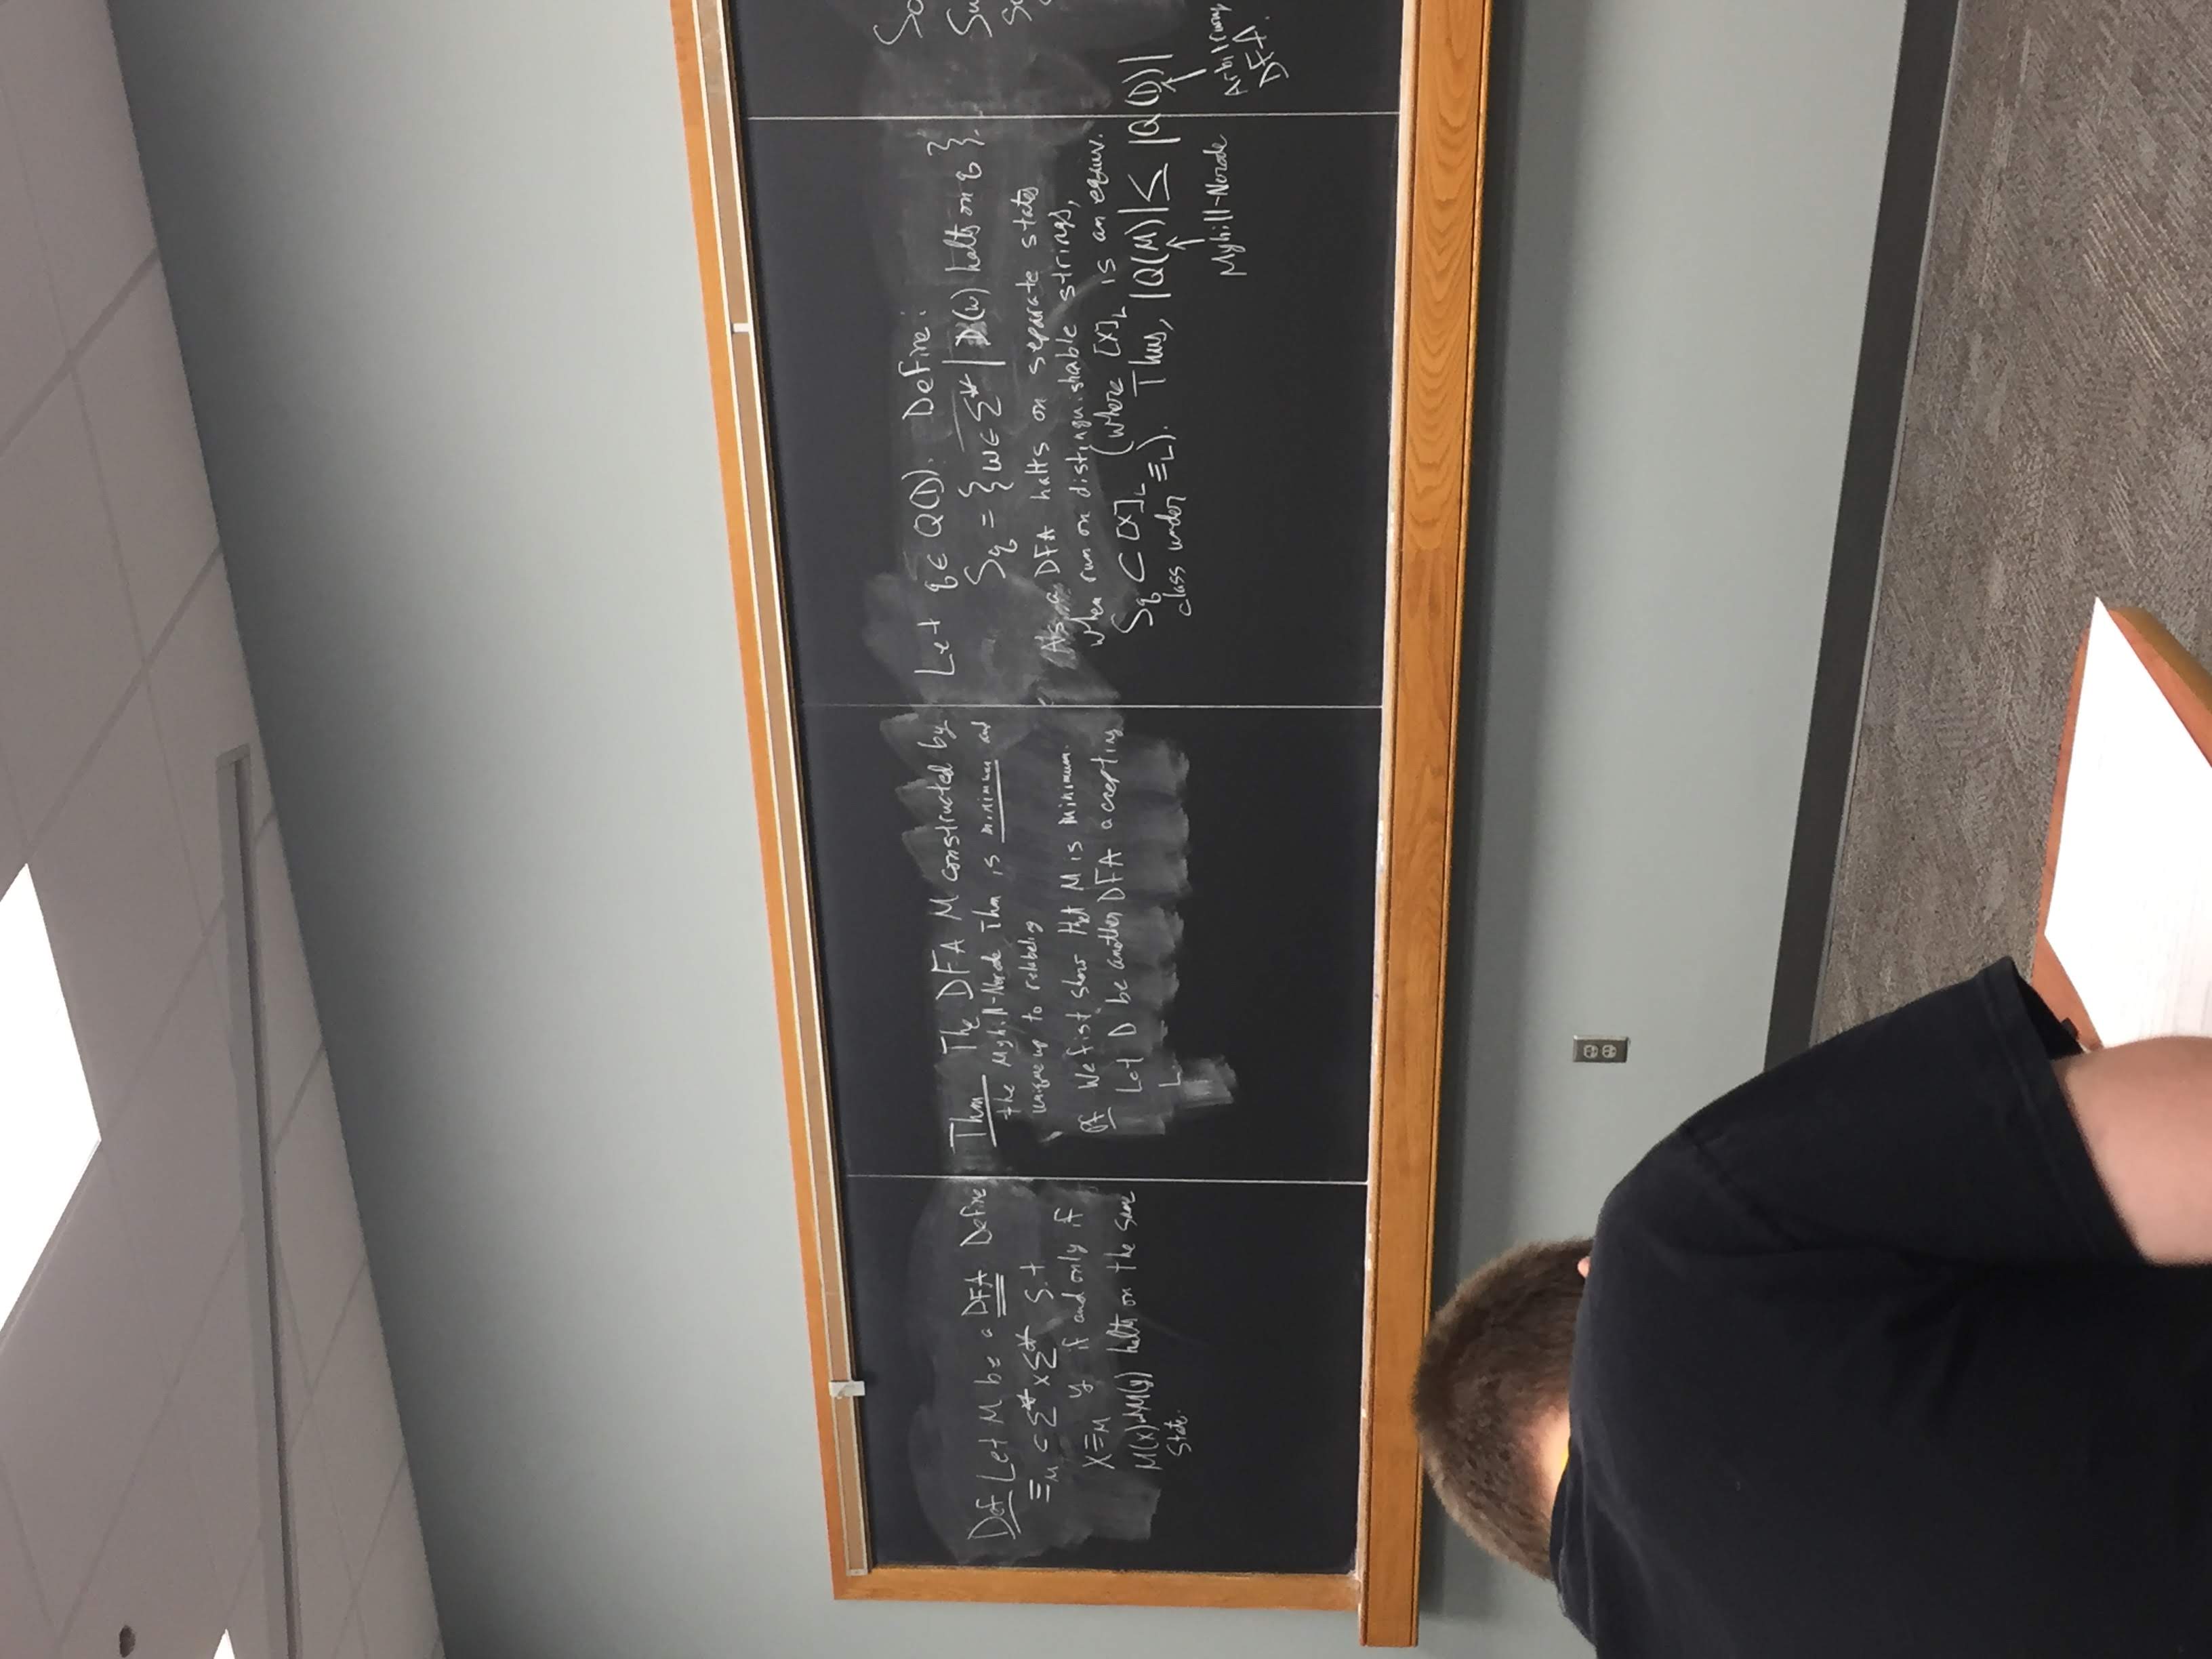 Def Let M be a DFA Define
≡M ⊂ Σ* x Σ* s.t
X ≡M y if and only if
M(x) and M(y) halts on the same
State.
Thm The DFA M constructed by
the Myhill-Nerode Thm is minimum and
unique up to relabeling
Pf We fist show that M is minimum.
Let D be another DFA accepting
L.
Let q ∈ Q(D). Define:
Sq = {w ∈ Σ* | D(w) halts on q}.
As a DFA halts on separate states
when run on distinguishable strings,
Sq ⊂ [x]L (where [x]L is an equiv.
class under ≡L). Thus, |Q(M)| ≤ |Q(D)|
↑ Myhill-Nerode
↑ Arbitrary
DFA.